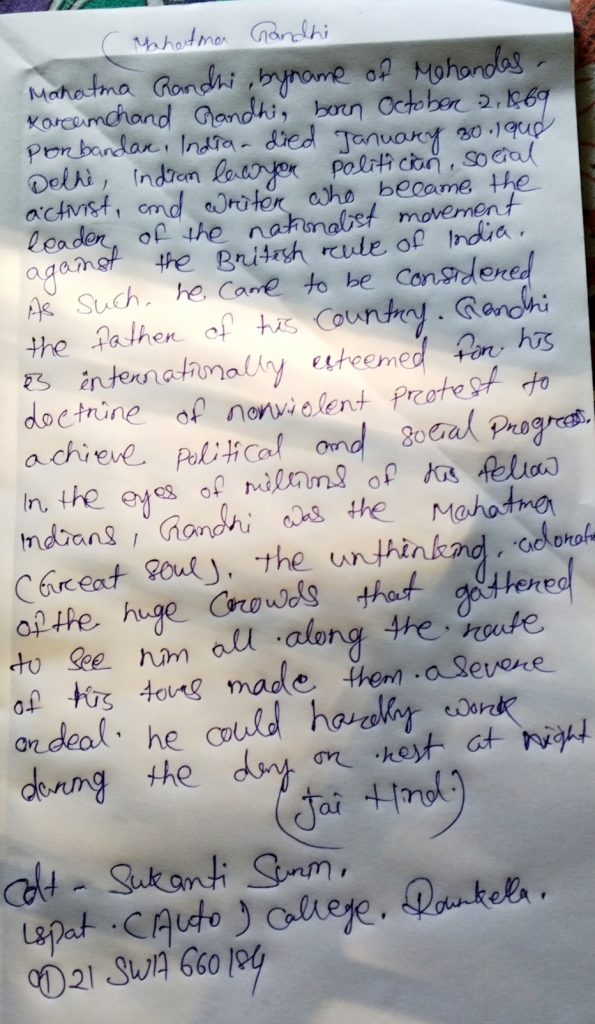 (Mahatma Gandhi
Mahatma Gandhi, byname of Mohandas
Karamchand Gandhi, born October 2, 1869
Porbandar, India - died January 30.1948
Delhi, Indian lawyer politician, social
activist, and writer who became the
leader of the nationalist movement
against the British rule of India.
As such, he came to be considered
the father of his country. Gandhi
is internationally esteemed for his
doctrine of nonviolent protest to
achieve political and social progress.
In the eyes of millions of his fellow
Indians, Gandhi was the Mahatma
(Great soul). the unthinking, adorat
of the huge crowds that gathered
to see him all along the route
of his tours made them a severe
ordeal. he could hardly work
during the day or rest at night
(Jai Hind.)
Cdt - Sukanti Surin.
Ispat (Auto) College, Rourkela.
OD21 SWA 660184